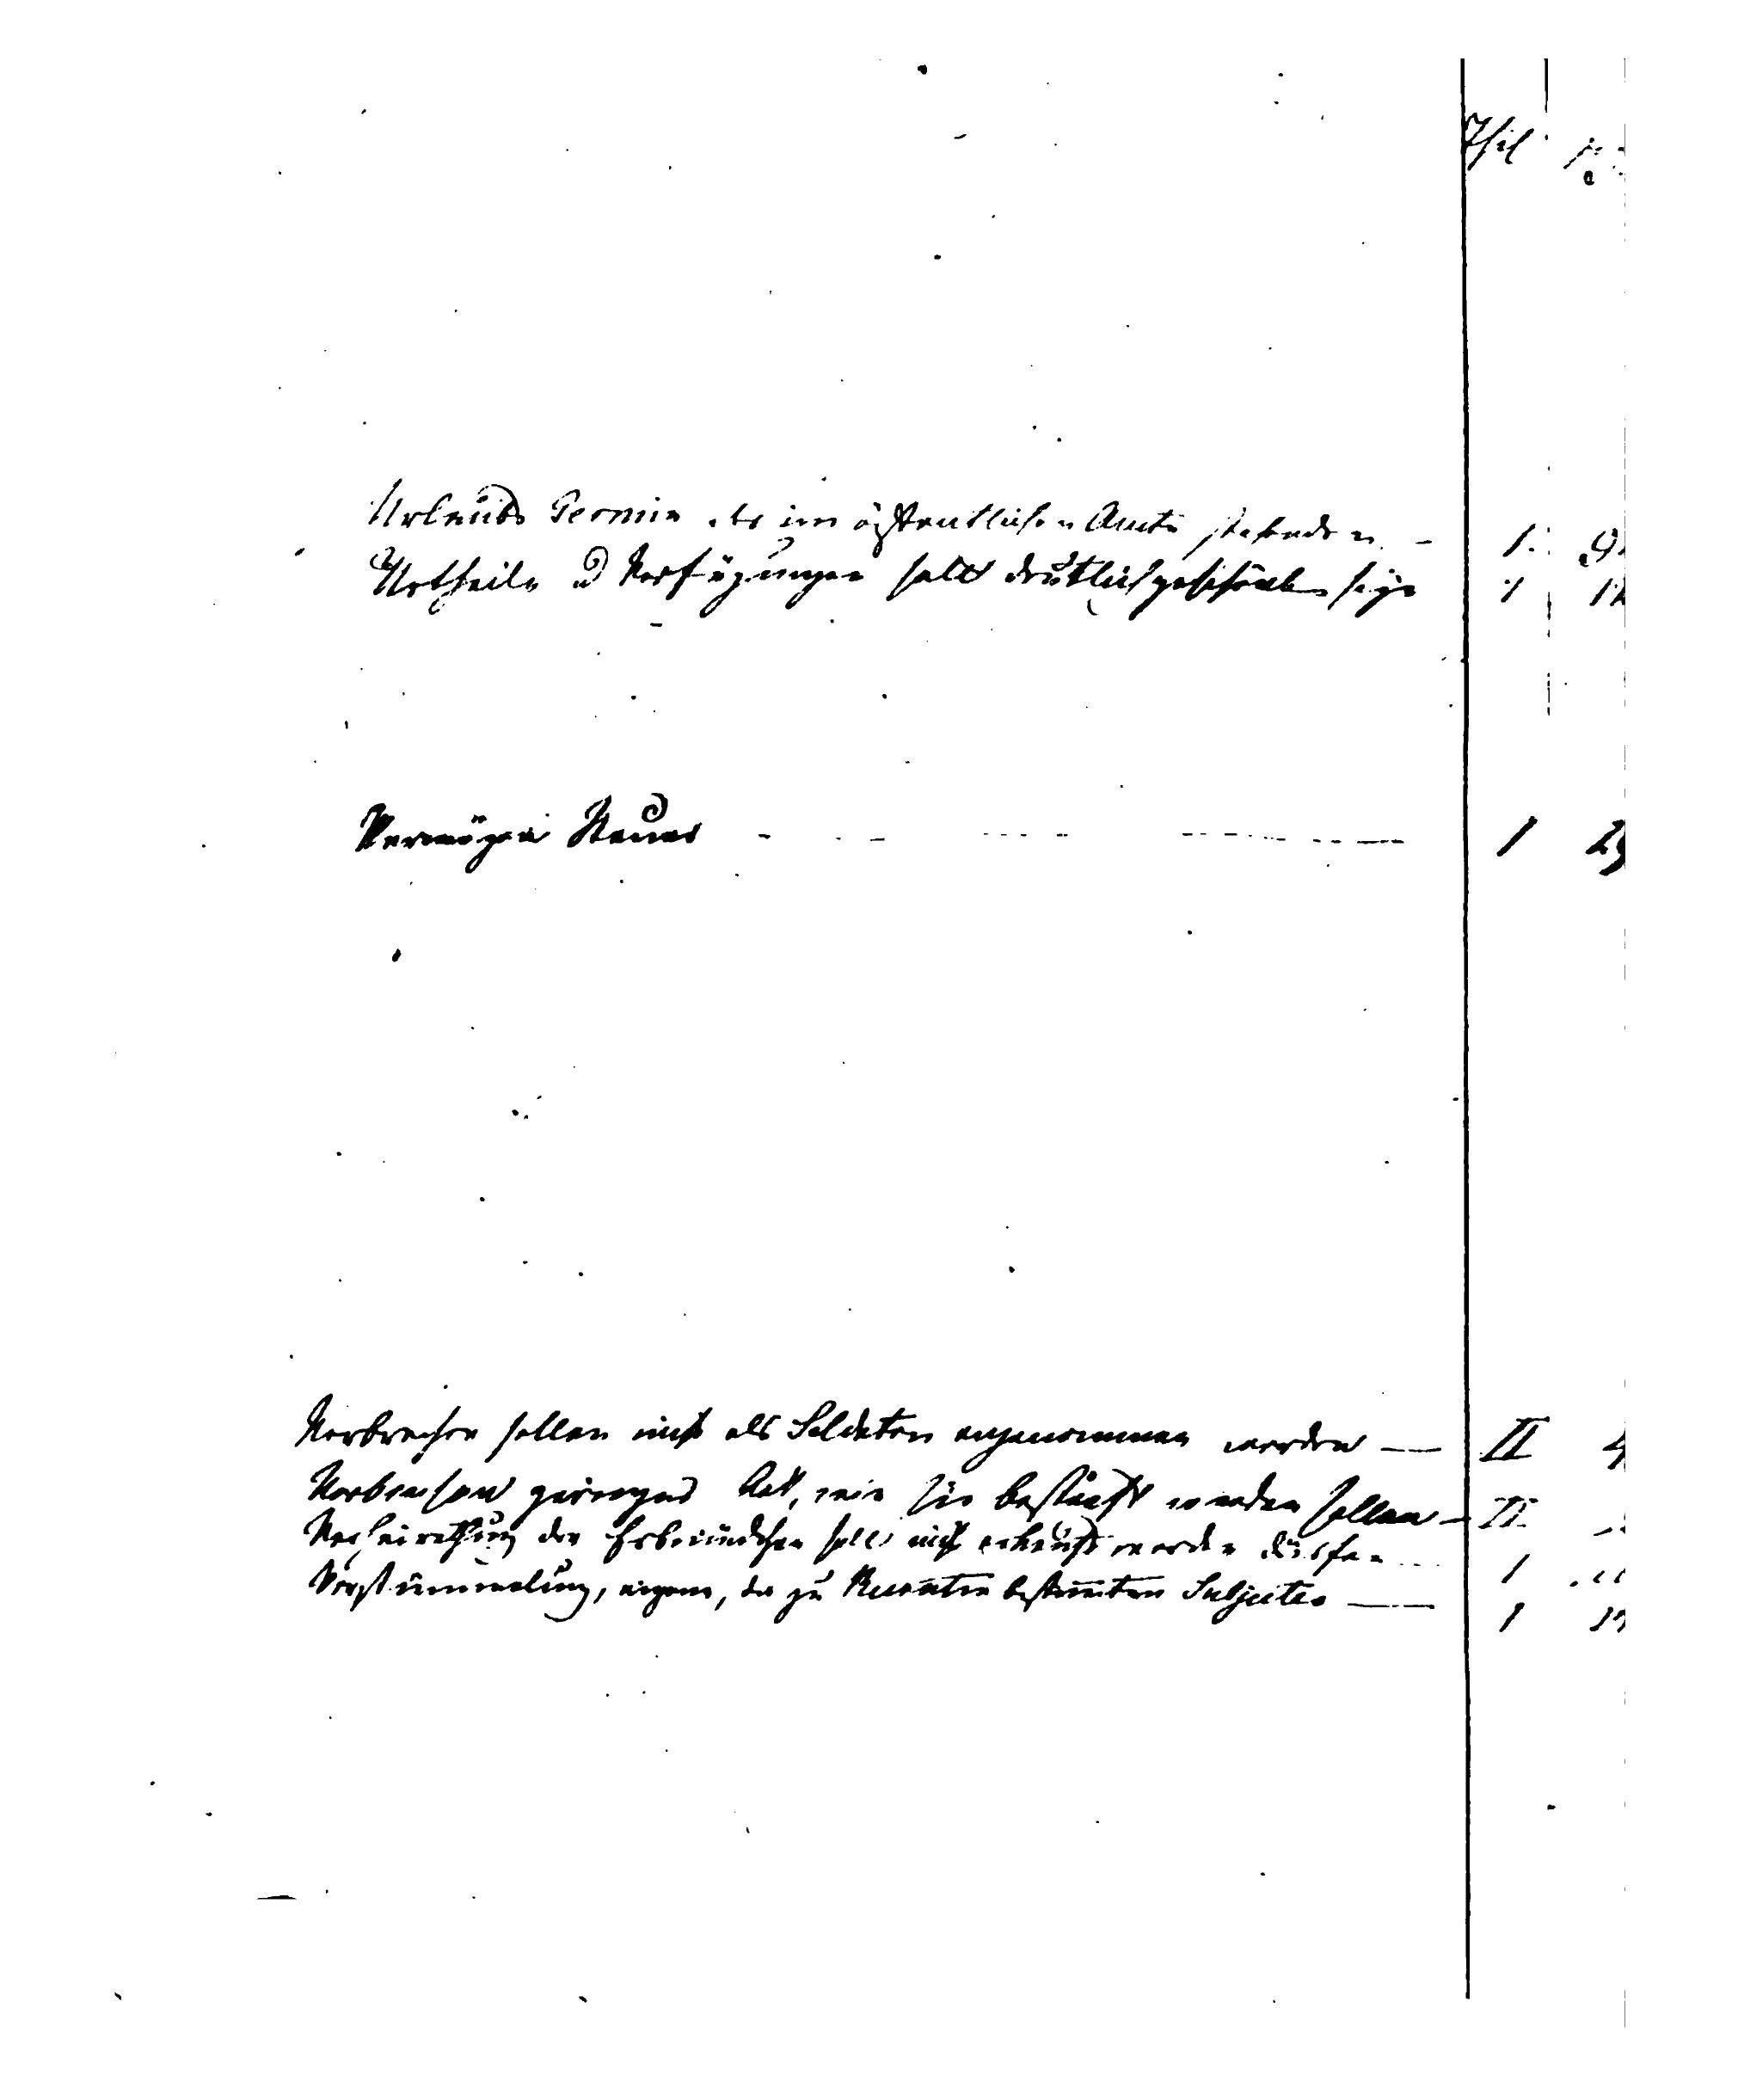 Theil
Urlaubs Termin der im öffentlichen Amte stehenden - 1.
Urtheile u Verfügungen solln deutlich geschrieben seyn 1 12
Vermögen Steuer - - - 1 29
Verbrecher sollen nicht als Soldaten angenommen werden — II 4
Verbrechen geringer Art, wie sie bestraft werden sollen — II
Verheirathung der soll nicht werden dürfen 1
Verstümmelung, eigene, der zu Recruten bestimten Subjecte — 1